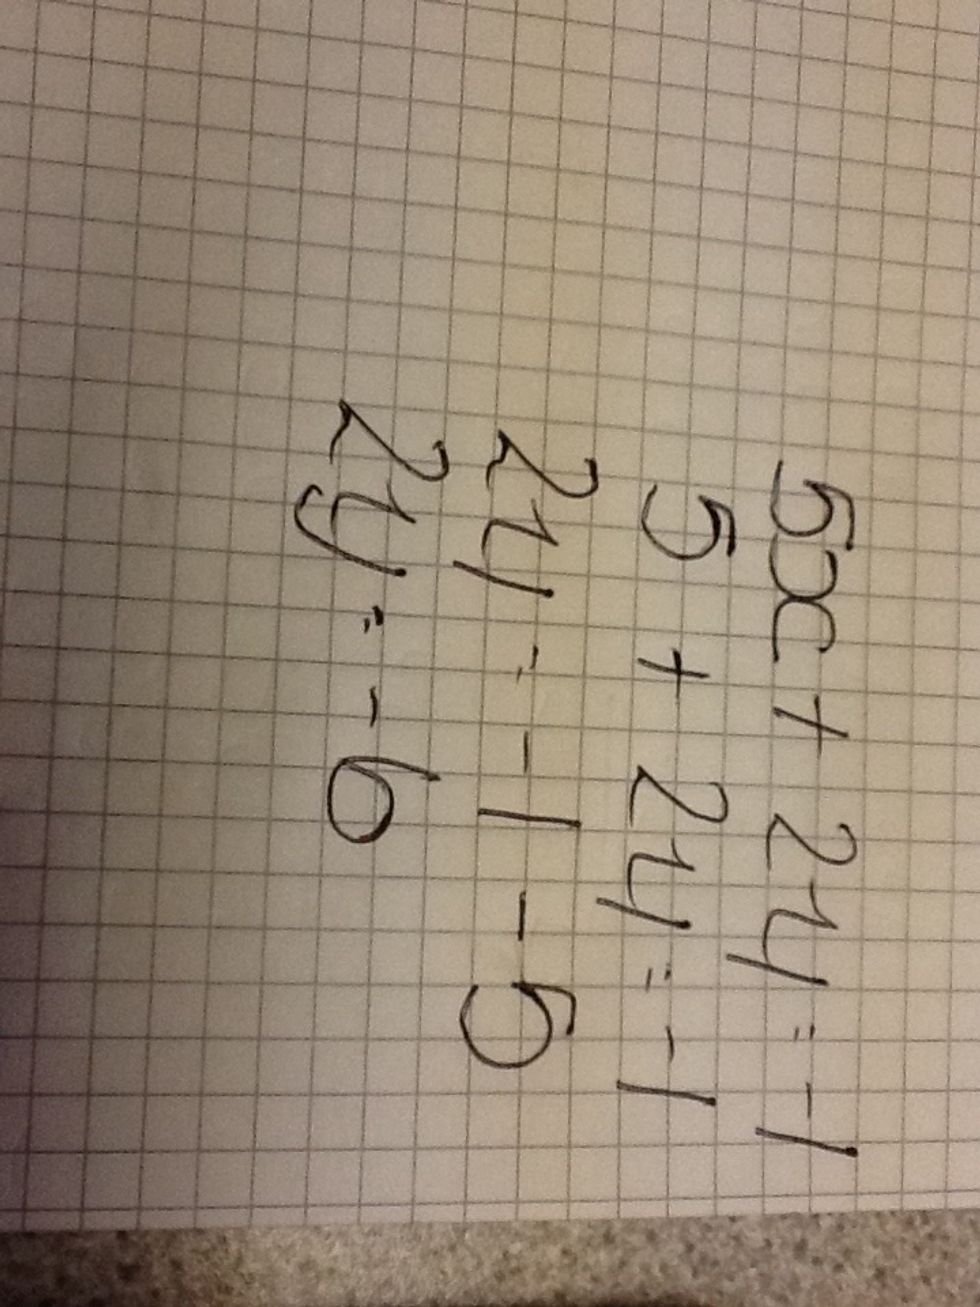 5x + 2y = -1
5 + 2y = -1
2y = -1 - 5
2y = -6